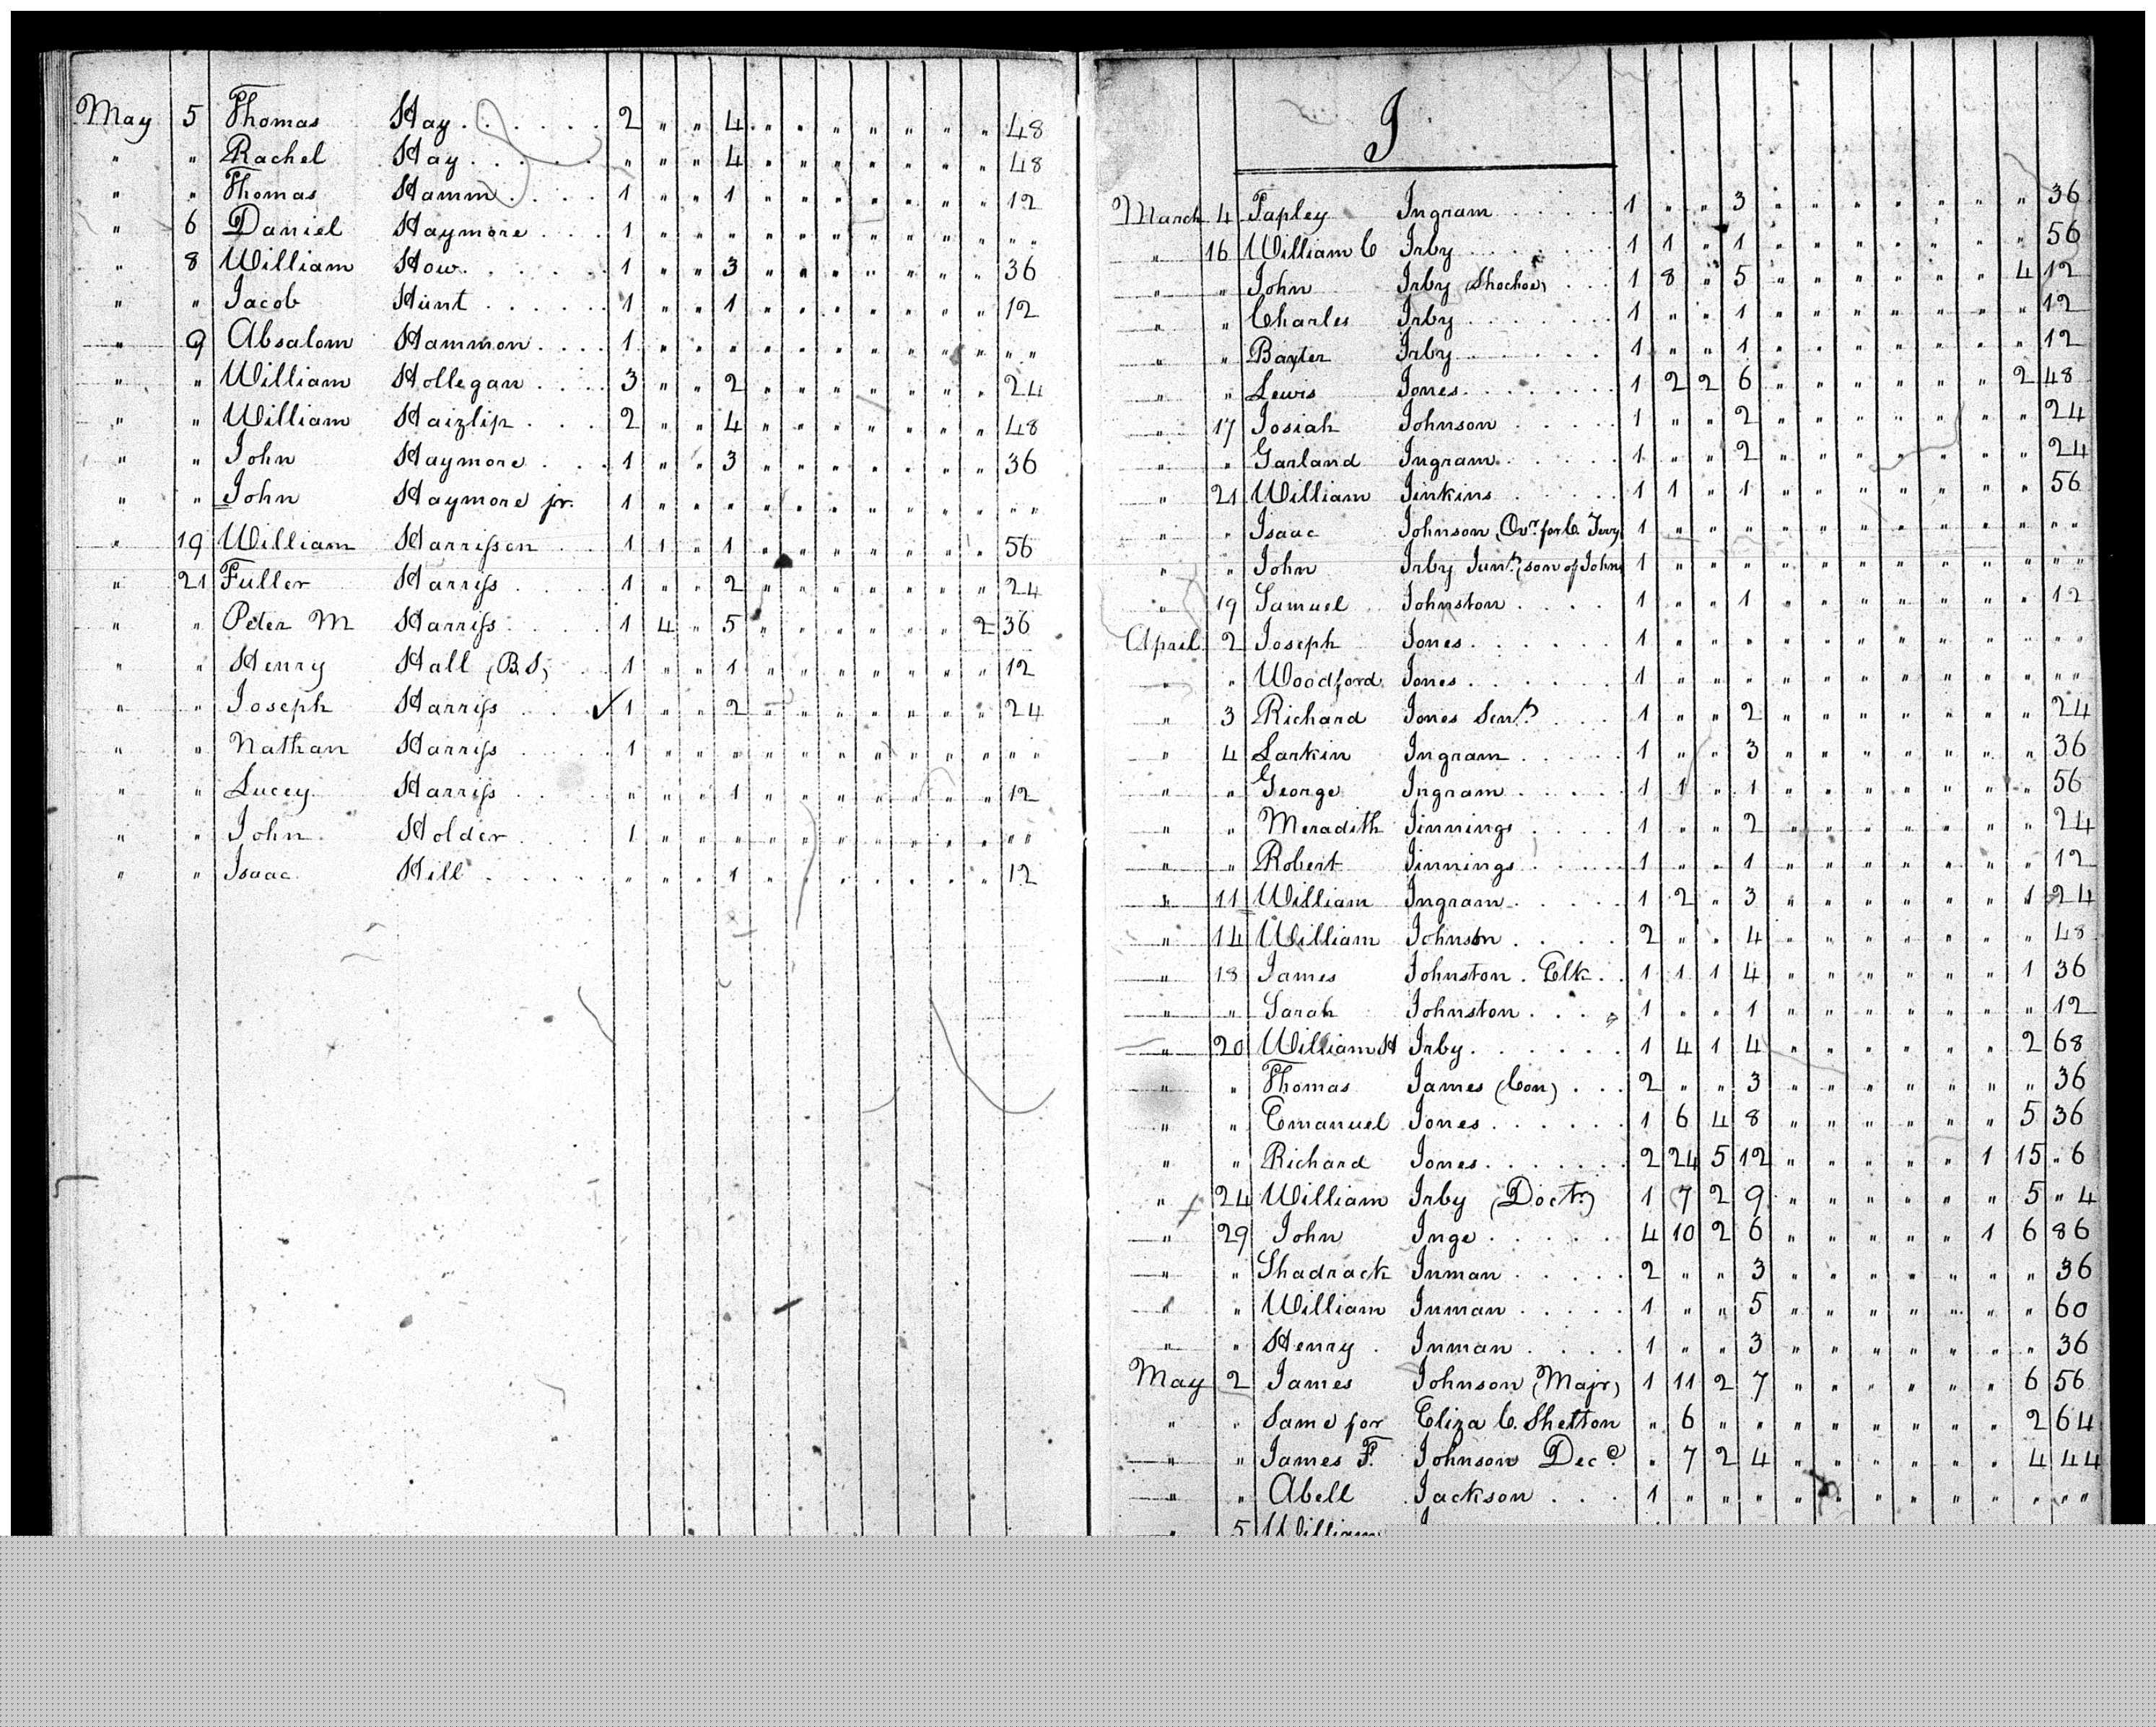 May 5 Thomas Hay . . . . . . 2 " " 4 " " " " " " " 48
" " Rachel Hay . . . . . " " " 4 " " " " " " " 48
" " Thomas Hamm . . . . 1 " " 1 " " " " " " " 12
" 6 Daniel Haymore . . . 1 " " " " " " " " " " " "
" 8 William How . . . . . 1 " " 3 " " " " " " " 36
" " Jacob Hunt . . . . . 1 " " 1 " " " " " " " 12
" 9 Absalom Hammon . . . . 1 " " " " " " " " " " " "
" " William Hollegan . . . . 3 " " 2 " " " " " " " 24
" " William Haizlip . . . 2 " " 4 " " " " " " " 48
" " John Haymore . . . 1 " " 3 " " " " " " " 36
" " John Haymore jr. 1 " " " " " " " " " " " "
" 19 William Harrisson . . 1 1 " 1 " " " " " " " 56
" 21 Fuller Harriss . . . . 1 " " 2 " " " " " " " 24
" " Peter M Harriss . . . . 1 4 " 5 " " " " " " 2 36
" " Henry Hall (B S) . . 1 " " 1 " " " " " " " 12
" " Joseph Harriss . . . ✓ 1 " " 2 " " " " " " " 24
" " Nathan Harriss . . . . 1 " " " " " " " " " " " "
" " Lucey Harriss . . . . " " " 1 " " " " " " " 12
" " John Holder . . . 1 " " " " " " " " " " " "
" " Isaac Hill . . . . . " " " 1 " " " " " " " 12
I
March 4 Tapley Ingram . . . . . 1 " " 3 " " " " " " " 36
" 16 William C Irby . . . . . . 1 1 " 1 " " " " " " " 56
" " John Irby (Shochoe) . . 1 8 " 5 " " " " " " 4 12
" " Charles Irby . . . . . . 1 " " 1 " " " " " " " 12
" " Baxter Irby . . . . . . 1 " " 1 " " " " " " " 12
" " Lewis Jones . . . . . . 1 2 2 6 " " " " " " 2 48
" 17 Josiah Johnson . . . . . 1 " " 2 " " " " " " " 24
" " Garland Ingram . . . . . 1 " " 2 " " " " " " " 24
" 21 William Jinkins . . . . . 1 1 " 1 " " " " " " " 56
" " Isaac Johnson (Ovr. for C. Terry 1 " " " " " " " " " " " "
" " John Irby Junr. (son of John 1 " " " " " " " " " " " "
" 19 Samuel Johnston . . . . 1 " " 1 " " " " " " " 12
April 2 Joseph Jones . . . . . . 1 " " " " " " " " " " " "
" " Woodford Jones . . . . . . 1 " " " " " " " " " " " "
" 3 Richard Jones Senr. . . . 1 " " 2 " " " " " " " 24
" 4 Larkin Ingram . . . . . 1 " " 3 " " " " " " " 36
" " George Ingram . . . . . 1 1 " 1 " " " " " " " 56
" " Meradith Jinnings . . . . 1 " " 2 " " " " " " " 24
" " Robert Jinnings . . . . . 1 " " 1 " " " " " " " 12
" 11 William Ingram . . . . . 1 2 " 3 " " " " " " 1 24
" 14 William Johnston . . . . 2 " " 4 " " " " " " " 48
" 18 James Johnston . Elk . . 1 1 1 4 " " " " " " 1 36
" " Sarah Johnston . . . . 1 " " 1 " " " " " " " 12
" 20 William H Irby . . . . . . 1 4 1 4 " " " " " " 2 68
" " Thomas James (Con) . . . 2 " " 3 " " " " " " " 36
" " Emanuel Jones . . . . . . 1 6 4 8 " " " " " " 5 36
" " Richard Jones . . . . . . 2 24 5 12 " " " " " 1 15 " 6
" 24 William Irby (Doctr) 1 7 2 9 " " " " " " 5 " 4
" 29 John Inge . . . . . 4 10 2 6 " " " " " 1 6 86
" " Shadrack Inman . . . . . 2 " " 3 " " " " " " " 36
" " William Inman . . . . . 1 " " 5 " " " " " " " 60
" " Henry . Inman . . . . 1 " " 3 " " " " " " " 36
May 2 James Johnson (Majr) 1 11 2 7 " " " " " " 6 56
" " Same for Eliza C. Shelton " 6 " " " " " " " " 2 64
" " James F. Johnson Decd. " 7 2 4 " " " " " " 4 44
" " Abell Jackson . . . 1 " " " " " " " " " " " "
" 5 William